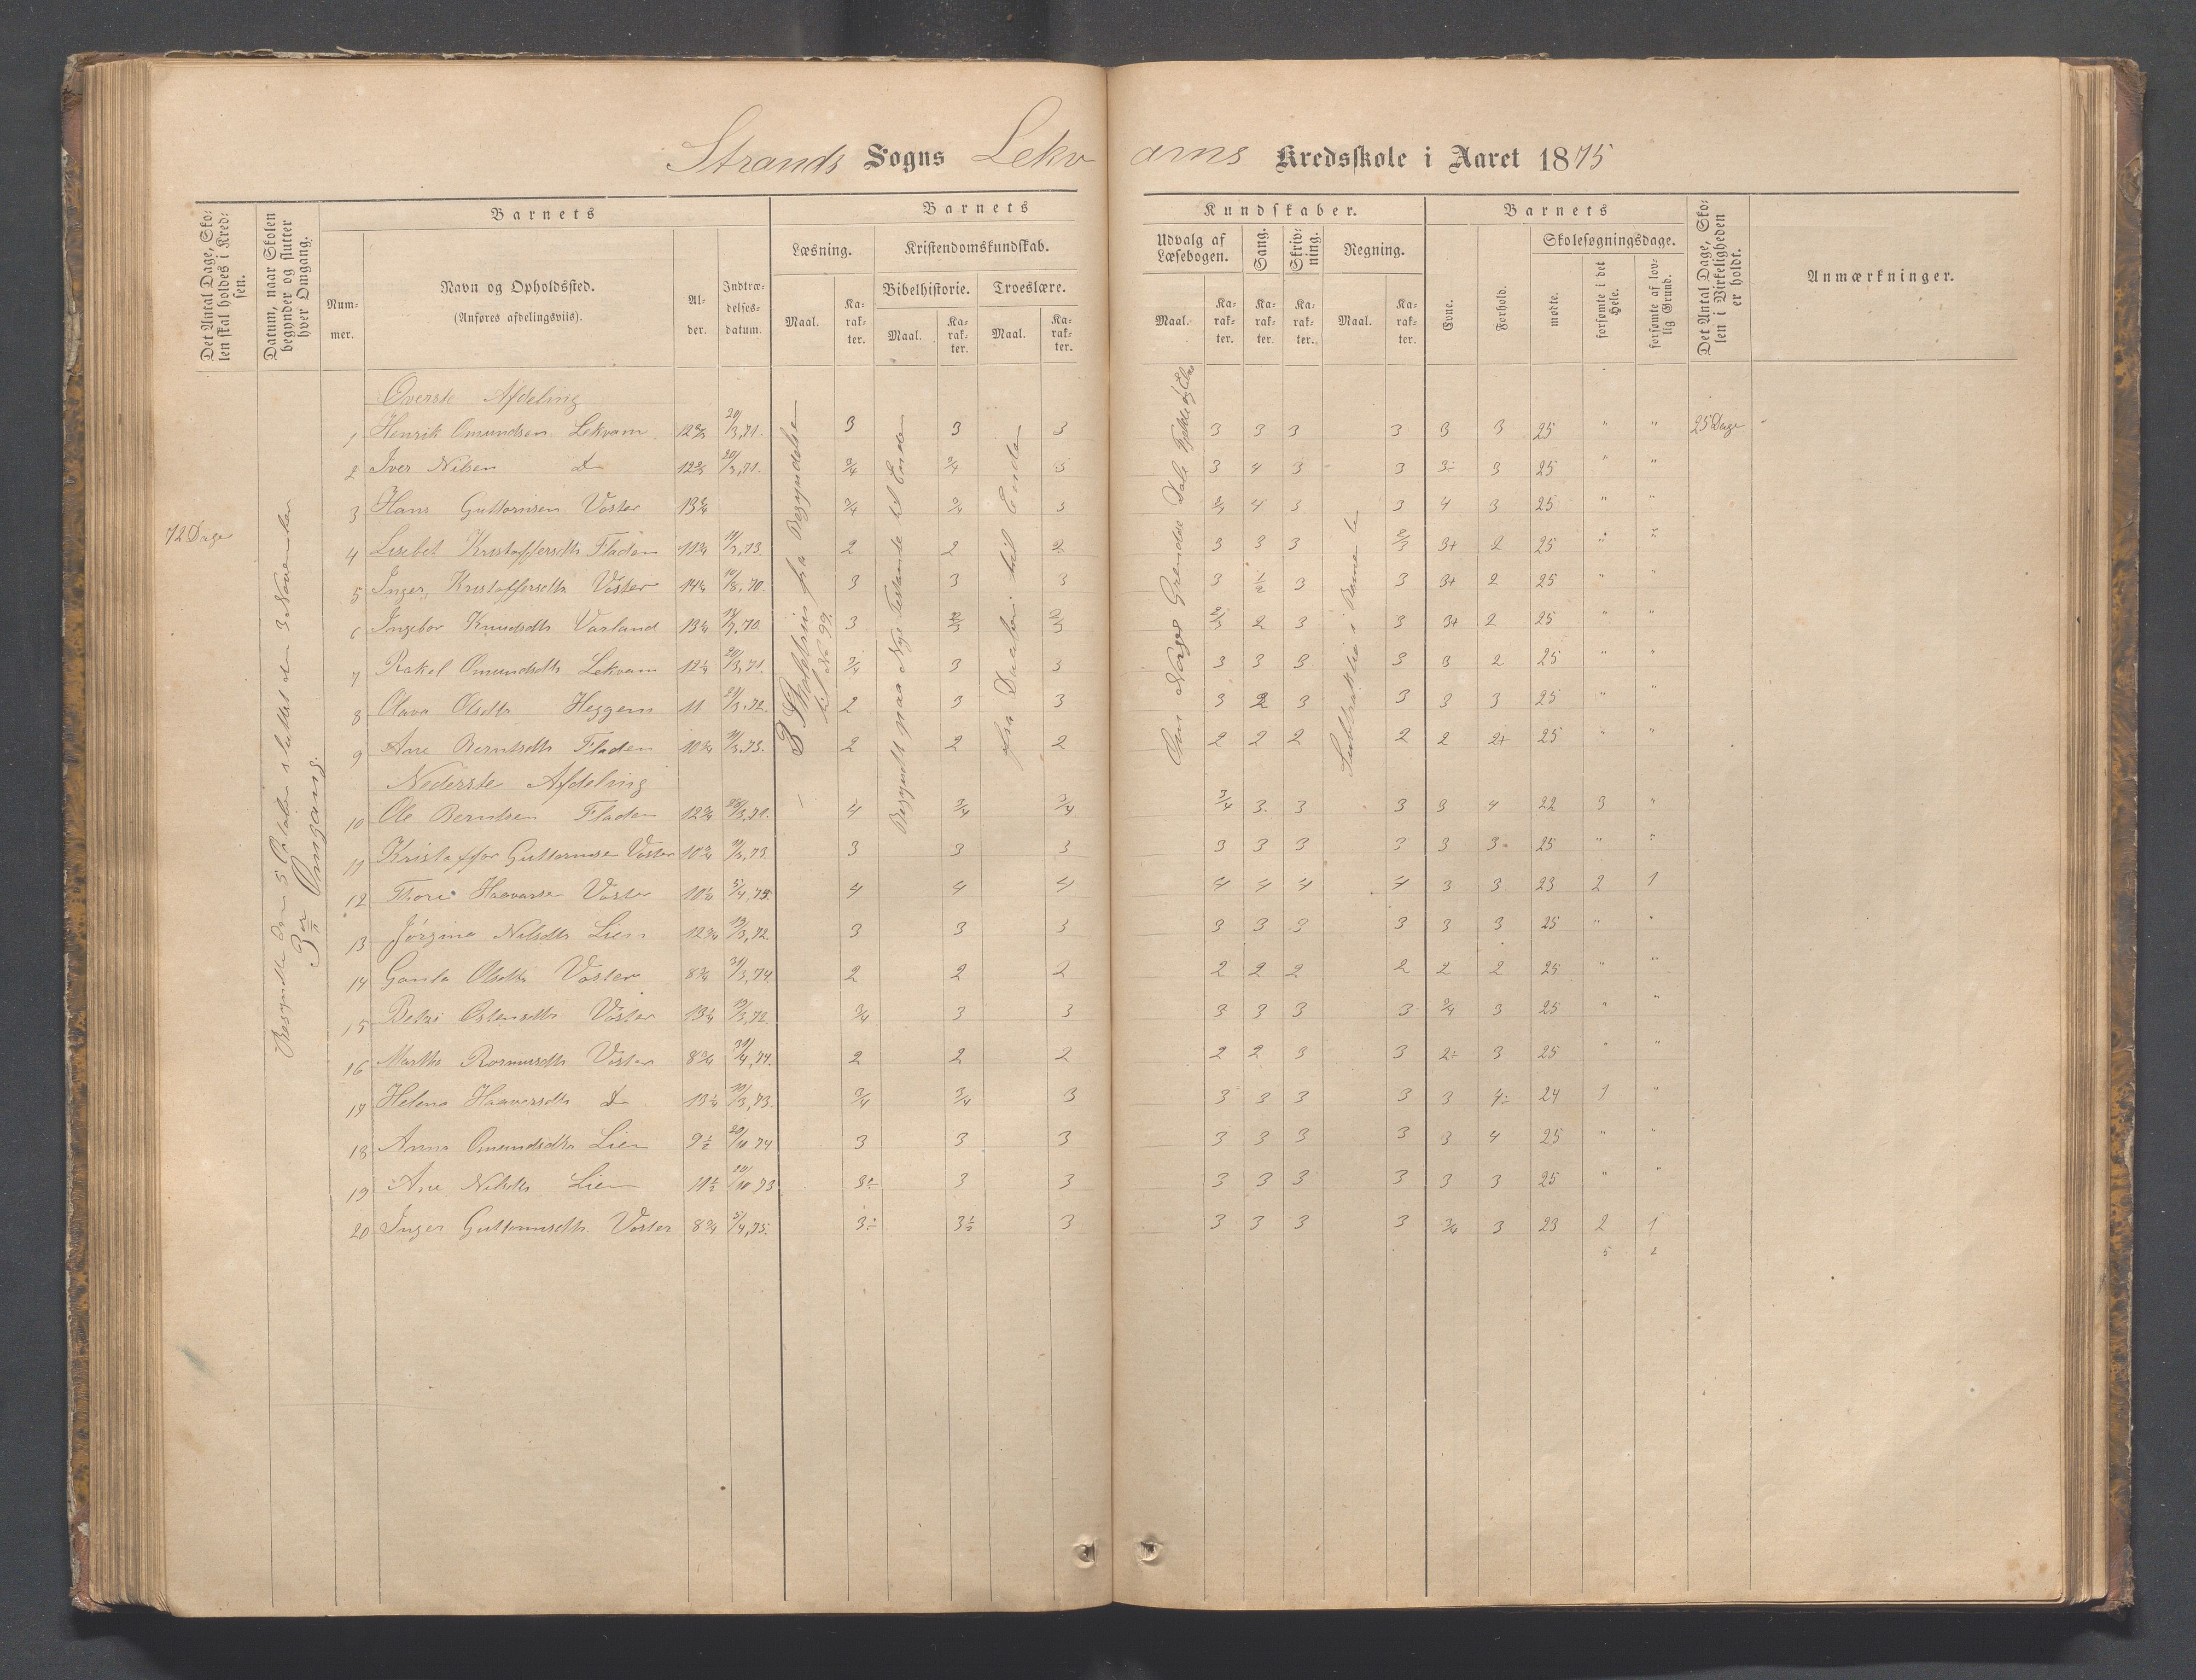 Strands Sogns Lekv
arns Kredsskole i Aaret 1875
Det Antal Dage, Sko-
len skal holdes i Kred-
sen.
Datum, naar Skolen
begynder og slutter
hver Omgang.
Barnets
Num-
mer.
Navn og Opholdssted.
(Anføres afdelingsviis).
Al-
der.
Indtræ-
delses-
datum.
Barnets
Læsning.
Maal.
Ka-
rak-
ter.
Kristendomskundskab.
Bibelhistorie.
Maal.
Ka-
rak-
ter.
Troeslære.
Maal.
Ka-
rak-
ter.
Kundskaber.
Udvalg af
Læsebogen.
Maal.
Ka-
rak-
ter.
Sang.
Ka-
rak-
ter.
Skriv-
ning.
Ka-
rak-
ter.
Regning.
Maal.
Ka-
rak-
ter.
Barnets
Evne.
Forhold.
Skolesøgningsdage.
mødte.
forsømte i det
Hele.
forsømte af lov-
lig Grund.
Det Antal Dage, Sko-
len i Virkeligheden
er holdt.
Anmærkninger.
72 Dage
Begyndte den 5 Oktober sluttet den 3 November
3die Omgang.
B Skoletrin fra Begyndelsen
til No 99.
Begyndt paa Nye Testamente til Enden
fra Daaben til Enden
Om Norges Grændse Dale Fjelde og Elve
Subtraktion i Benævnte
Øverste Afdeling
1 Henrik Omundsen Lekvam 12 20/3,71. 3 3 3 3 3 3 3 3 3 25 " " 25 Dage
2 Iver Nilsen Do 12 20/3,71. 3/4 3/4 3 3 4 3 3 3÷ 3 25 " "
3 Hans Guttormsen Voster 13 3/4 3/4 3 3/4 4 3 3 4 3 25 " "
4 Lisebet Kristoffersdtr Fladen 11 3/4 2 2 2 3 3 3 2/3 3+ 2 25 " "
5 Inger Kristoffersdtr Voster 14 10/8,70. 3 3 3 3 1/2 3 3 3+ 2 25 " "
6 Ingebor Knudsdtr Varland 13 3 2/3 2/3 2/3 2 3 3 3+ 2 25 " "
7 Rakel Omundsdtr Lekvam 12 20/3,71. 3/4 3 3 3 3 3 3 3 2 25 " "
8 Olava Olsdtr Heggem 11 2 3 3 3 2 3 3 3 3 25 " "
9 Ane Berntsdtr Fladen 10 3/4 2 2 2 2 2 2 2 2 2+ 25 " "
Nederste Afdeling
10 Ole Berntsen Fladen 12 3/4 4 3/4 3/4 3/4 3 3 3 3 4 22 3 "
11 Kristoffer Guttormsen Voster 10 3/4 3 3 3 3 3 3 3 3 3 25 " "
12 Thore Haavarsen Voster 10 5/4,75. 4 4 4 4 4 4 4 3 3 23 2 1
13 Jørgine Nilsdtr Lien 12 3/4 3 3 3 3 3 3 3 3 3 25 " "
14 Gunla Olsdtr Voster 8 3/4 31/3,74. 2 2 2 2 2 2 2 2 2 25 " "
15 Betzi Ostensdtr Voster 13 3/4 3 3 3 3 3 3 3/4 3 25 " "
16 Martha Rasmusdtr Voster 8 3/4 2 2 2 2 2 3 3 2÷ 3 25 " "
17 Helena Haavarsdtr Do 13 3/4 3/4 3 3 3 3 3 3 4÷ 24 1 "
18 Anna Omundsdtr Lien 9 1/2 3 3 3 3 3 3 3 3 4 25 " "
19 Ane Nilsdtr Lien 11 1/2 3÷ 3 3 3 3 3 3 3 3 25 " "
20 Inger Guttormsdtr Voster 8 3/4 5/4,75. 3÷ 3 1/2 3 3 3 3 3 3/4 3 23 2 1
5 2